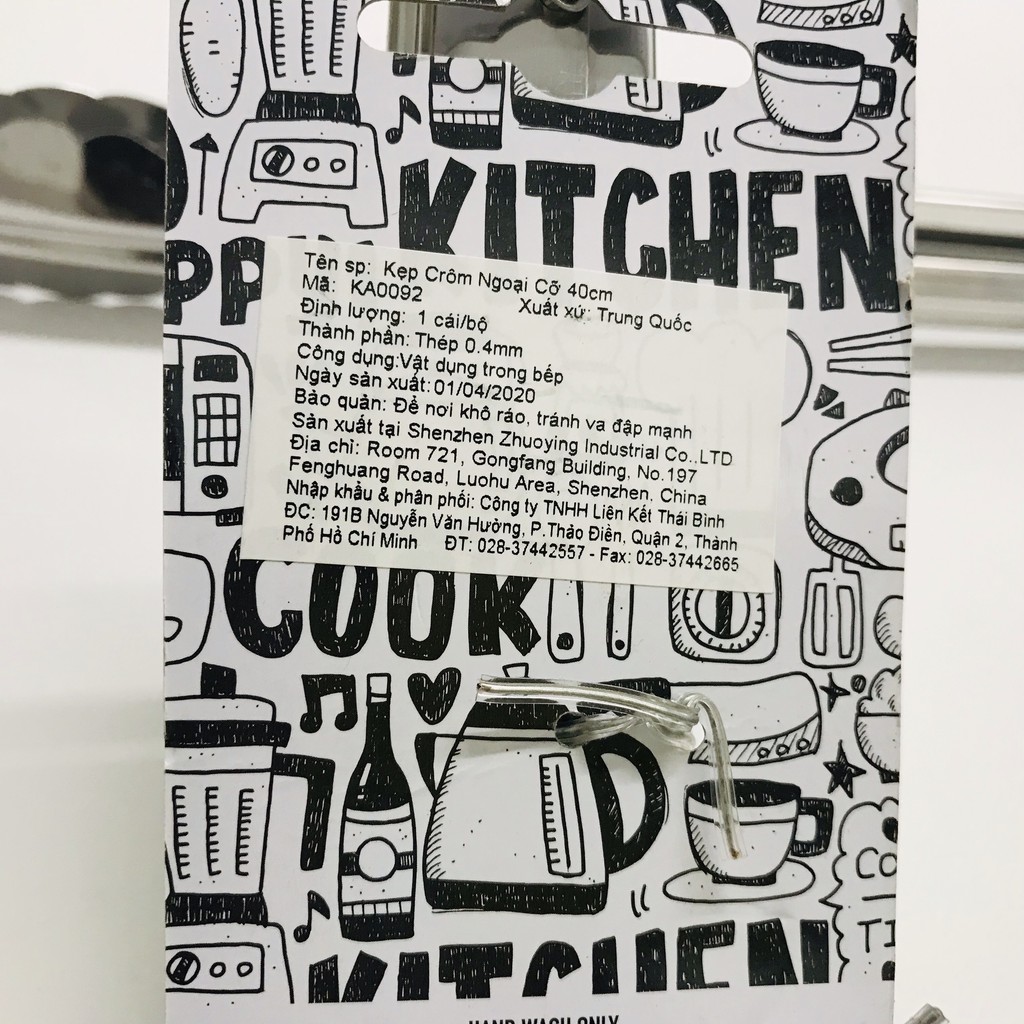 KITCHEN
Tên sp: Kẹp Crôm Ngoại Cỡ 40cm
Mã: KA0092 Xuất xứ: Trung Quốc
Định lượng: 1 cái/bộ
Thành phần: Thép 0.4mm
Công dụng:Vật dụng trong bếp
Ngày sản xuất:01/04/2020
Bảo quản: Để nơi khô ráo, tránh va đập mạnh
Sản xuất tại Shenzhen Zhuoying Industrial Co.,LTD
Địa chỉ: Room 721, Gongfang Building, No.197
Fenghuang Road, Luohu Area, Shenzhen, China
Nhập khẩu & phân phối: Công ty TNHH Liên Kết Thái Bình
ĐC: 191B Nguyễn Văn Hưởng, P.Thảo Điền, Quận 2, Thành
Phố Hồ Chí Minh ĐT: 028-37442557 - Fax: 028-37442665
COOK
KITCHEN
HAND WASH ONLY